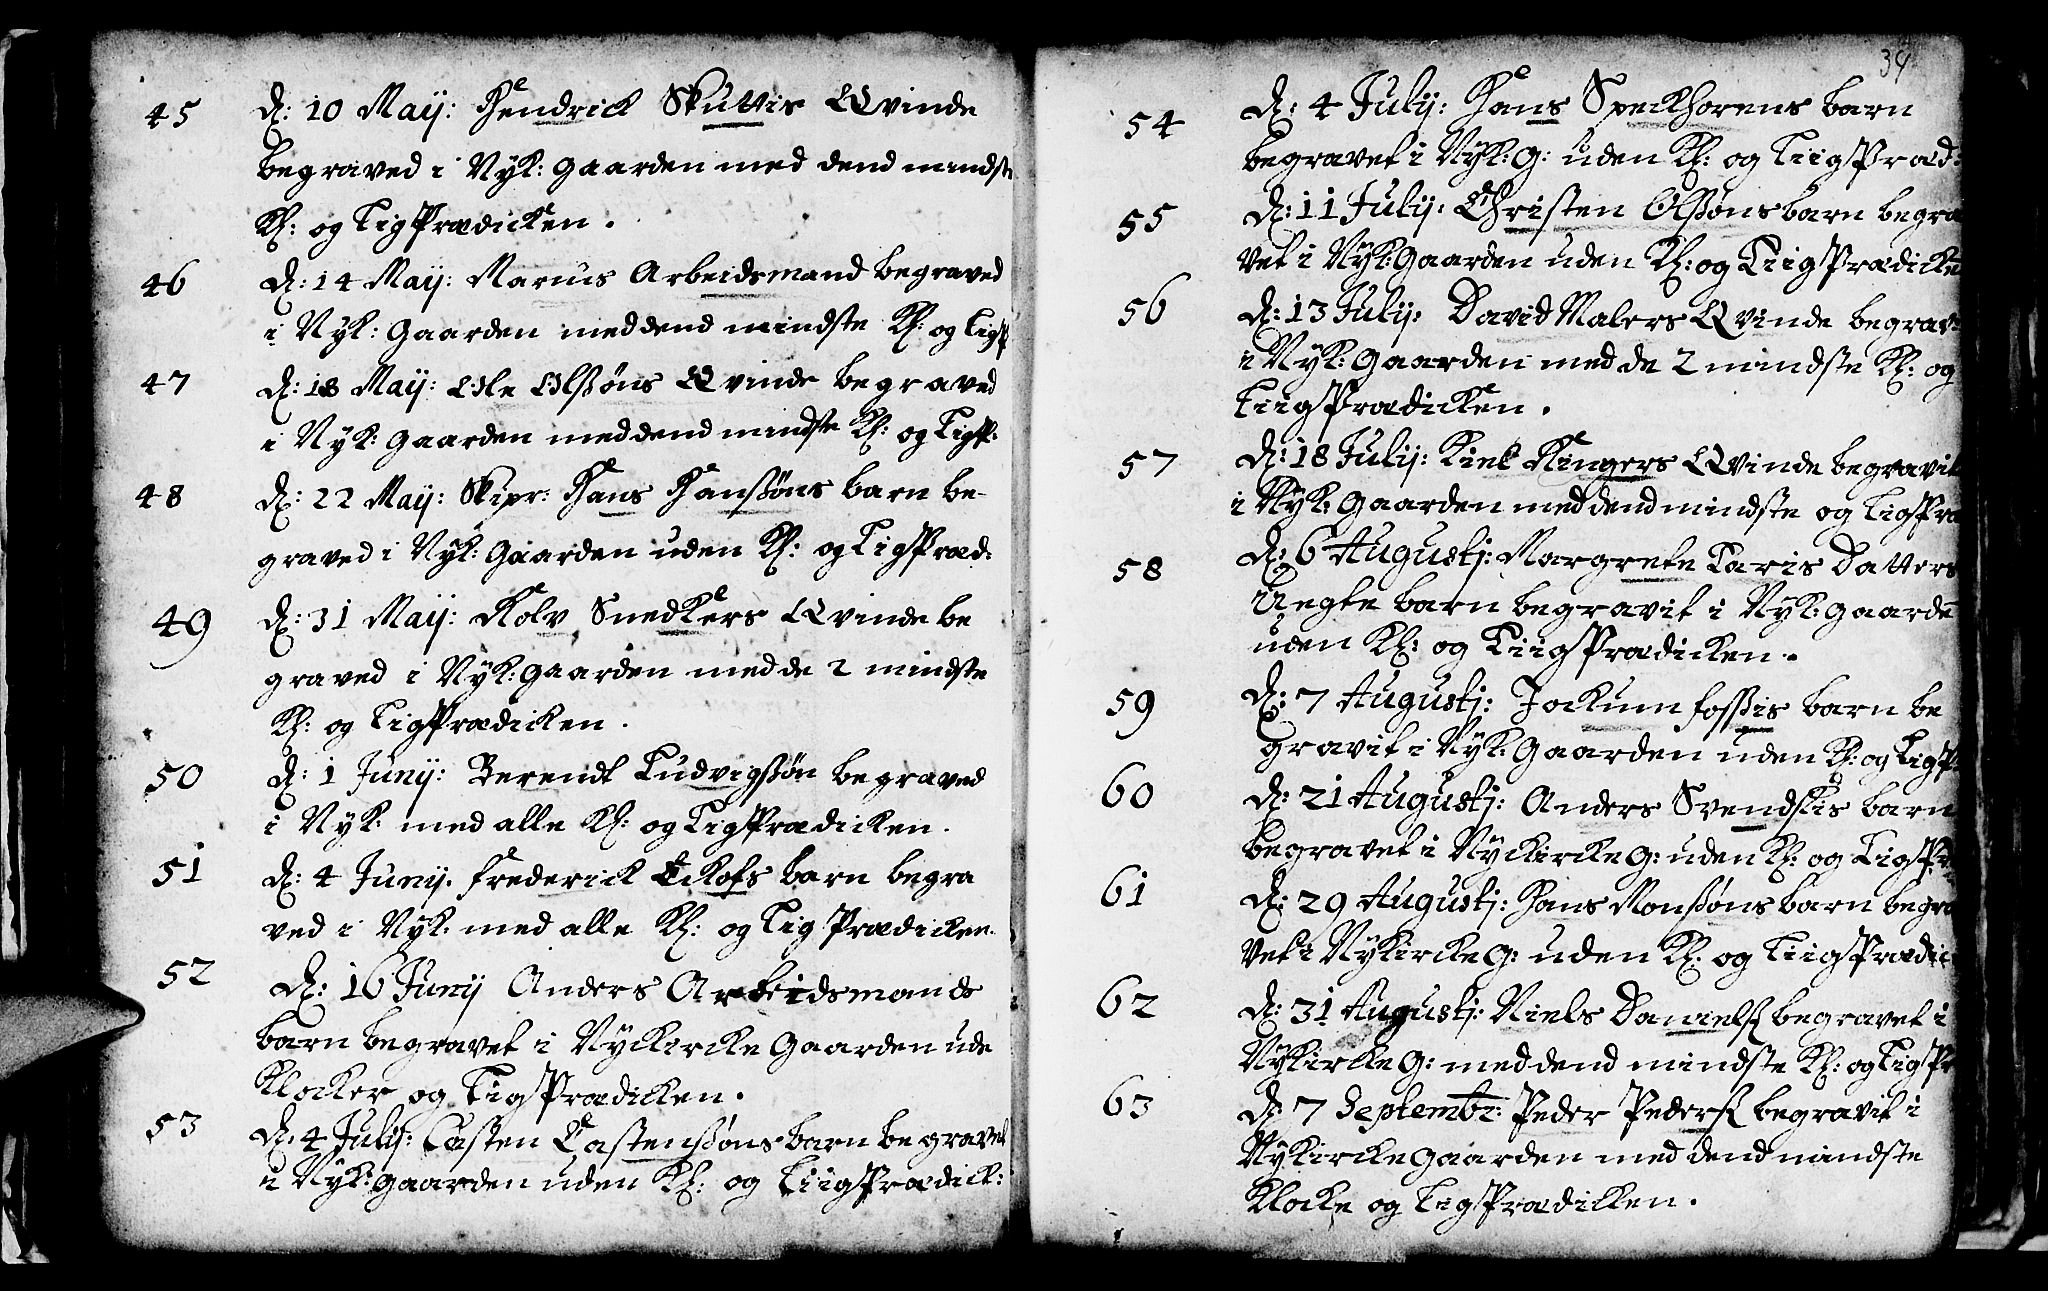 45 d: 10 Maij: Hendrick Skuttis Qvinde
begraved i Nyk: gaarden med dend mindste
Kl: og LigPrædicken.
46 d: 14 Maij: Marius Arbeidsmand begraved
i Nyk: Gaarden med dend mindste Kl: og LigP
47 d: 18 Maij: Ole Olssøns Qvinde begraved
i Nyk: gaarden med dend mindste Kl: og LigP:
48 d: 22 Maij: Skipr: Hans Hanssøns barn be-
graved i Nyk: Gaarden uden Kl: og LigPræd:
49 d: 31 Maij: Rolv Snedkers Qvinde be
graved i Nyk: gaarden med de 2 mindste
Kl: og LigPrædicken.
50 d: 1 Junij: Berendt Ludvigssøn begraved
i Nyk: med alle Kl: og LigPrædicken.
51 d: 4 Junij. Frederick Eckofs barn begra
ved i Nyk: med alle Kl: og Lig Prædicken.
52 D: 16 Junij Anders Arbeidsmands
barn begravet i Nyckircke Gaarden ude
Klocker og LigPrædicken.
53 D: 4 Julij: Casten Castenssøns barn begravet
i Nyk: gaarden uden Kl: og LiigPrædick:
34
54 D: 4 Julij: Hans Speckhorens barn
begravet i Nyk: G: uden Kl: og LiigPræd:
55 D: 11 Julij: Christen Olssøns barn begra
vet i Nyk: Gaarden uden Kl: og LiigPrædicke
56 D: 13 Julij: David Malers Qvinde begrav:
i Nyk: Gaarden med de 2 mindste Kl: og
LiigPrædicken.
57 D: 18 Julij: Kield Ringers Qvinde begravit
i Nyk: Gaarden med dend mindste og LigPræ
58 D: 6 Augustj: Margrete Laris Datters
Uegte barn begravit i Nyk: gaarde
uden Kl: og LiigPrædicken.
59 D: 7 Augustj: Jockum fossis barn be
gravit i Nyk: Gaarden uden Kl: og LigP:
60 D: 21 Augustj: Anders Svendskis barn
begravet i Nyckircke G: uden Kl: og LigPr
61 D: 29 Augustj: Hans Monssøns barn begra
vet i Nykircke G: uden Kl: og LiigPrædic
62 D: 31 Augustj: Niels Daniels: begravet i
Nykircke G: med dend mindste Kl: og LigPr
63 D: 7 Septembr: Peder Peders: begravit i
Nykircke Gaarden med dend mindste
Klocke og LigPrædicken.